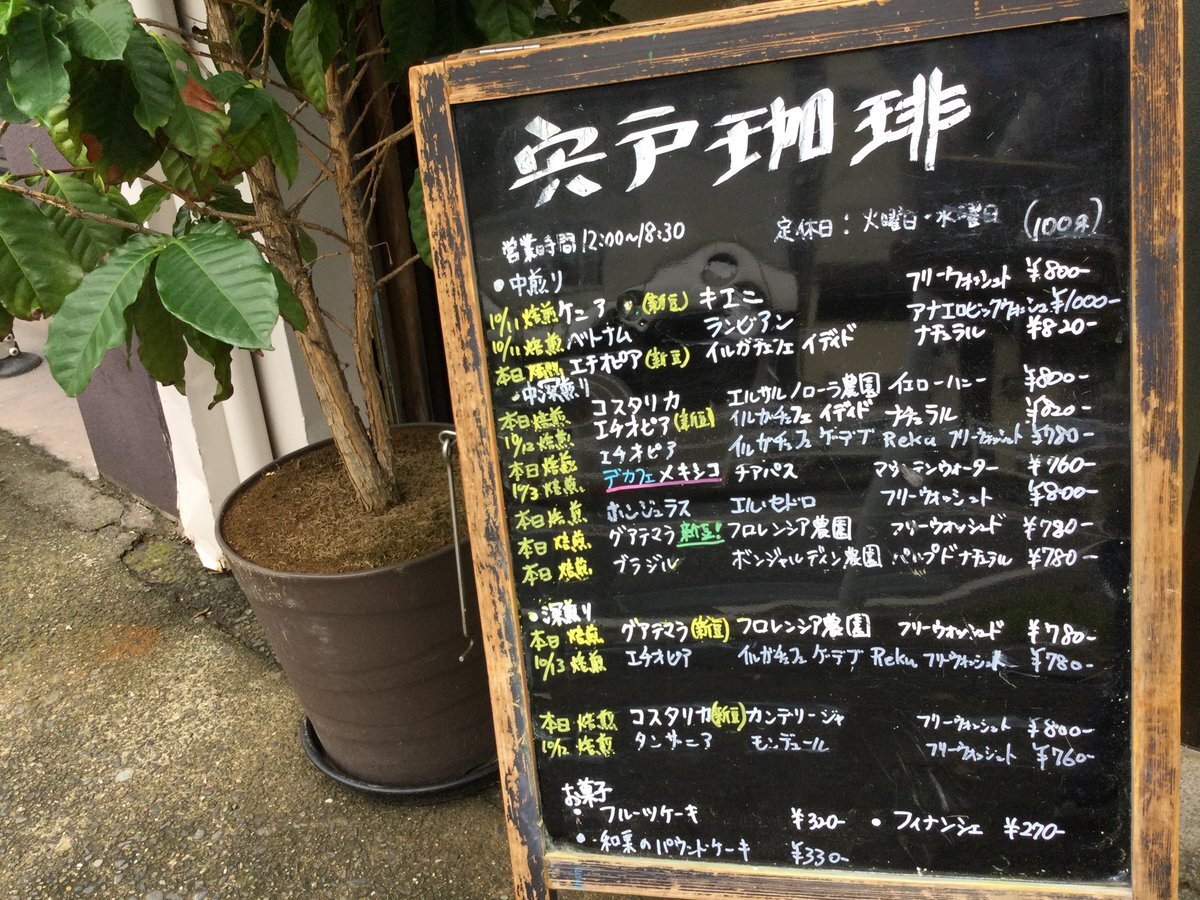 宍戸珈琲
営業時間 12:00〜18:30 定休日：火曜日・水曜日 (100g)
・中煎り
10/11 焙煎 ケニア (新豆) キエニ フリーウォッシュト ¥800-
10/11 焙煎 ベトナム ランビアン アナエロビックウォッシュ ¥1000-
本日 焙煎 エチオピア (新豆) イルガチェフェ イディド ナチュラル ¥820-
・中深煎り
本日 焙煎 コスタリカ エルサル ノローラ農園 イエローハニー ¥800-
本日 焙煎 エチオピア (新豆) イルガチェフェ イディド ナチュラル ¥820-
10/12 焙煎 エチオピア イルガチェフェ ゲーデブ Reku フリーウォッシュト ¥780-
本日 焙煎 デカフェ メキシコ チアパス マウンテンウォーター ¥760-
10/3 焙煎 ホンジュラス エル・セドロ フリーウォッシュト ¥800-
本日 焙煎 グアテマラ 新豆! フロレンシア農園 フリーウォッシュド ¥780-
本日 焙煎 ブラジル ボンジャルディン農園 パルプドナチュラル ¥780-
本日 焙煎
・深煎り
本日 焙煎 グアテマラ (新豆) フロレンシア農園 フリーウォッシュド ¥780-
10/13 焙煎 エチオピア イルガチェフェ ゲーデブ Reku フリーウォッシュト ¥780-
本日 焙煎 コスタリカ (新豆) カンデリージャ フリーウォッシュト ¥800-
10/12 焙煎 タンザニア モンデュール フリーウォッシュト ¥760-
お菓子
・フルーツケーキ ¥320- ・フィナンシェ ¥270-
・和栗のパウンドケーキ ¥330-